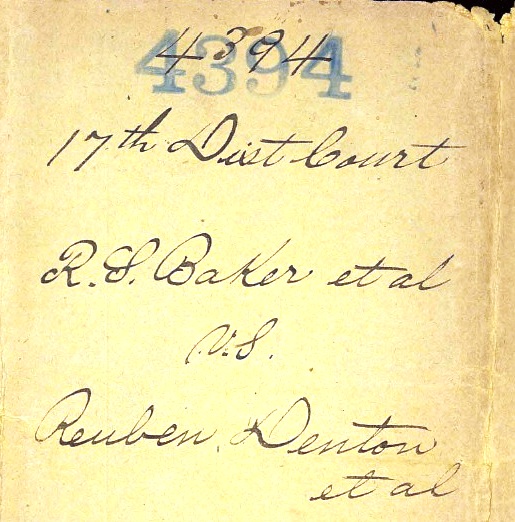 4394
4394
17th Dist Court
R. S. Baker et al
vs.
Reuben Denton
et al